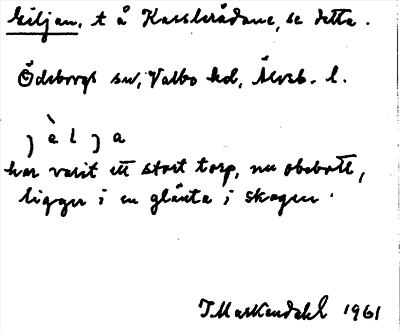 Giljan, t å Kasslerådane, se detta.
Ödeborgs sn, Valbo hd, Älvsb. l.
j è l j a
har varit ett stort torp, nu obebott,
ligger i en glänta i skogen.
J Markendahl 1961